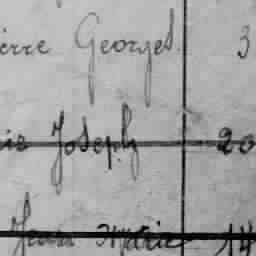 ierre Georges 3
ie Joseph 20
Jean Marie 14